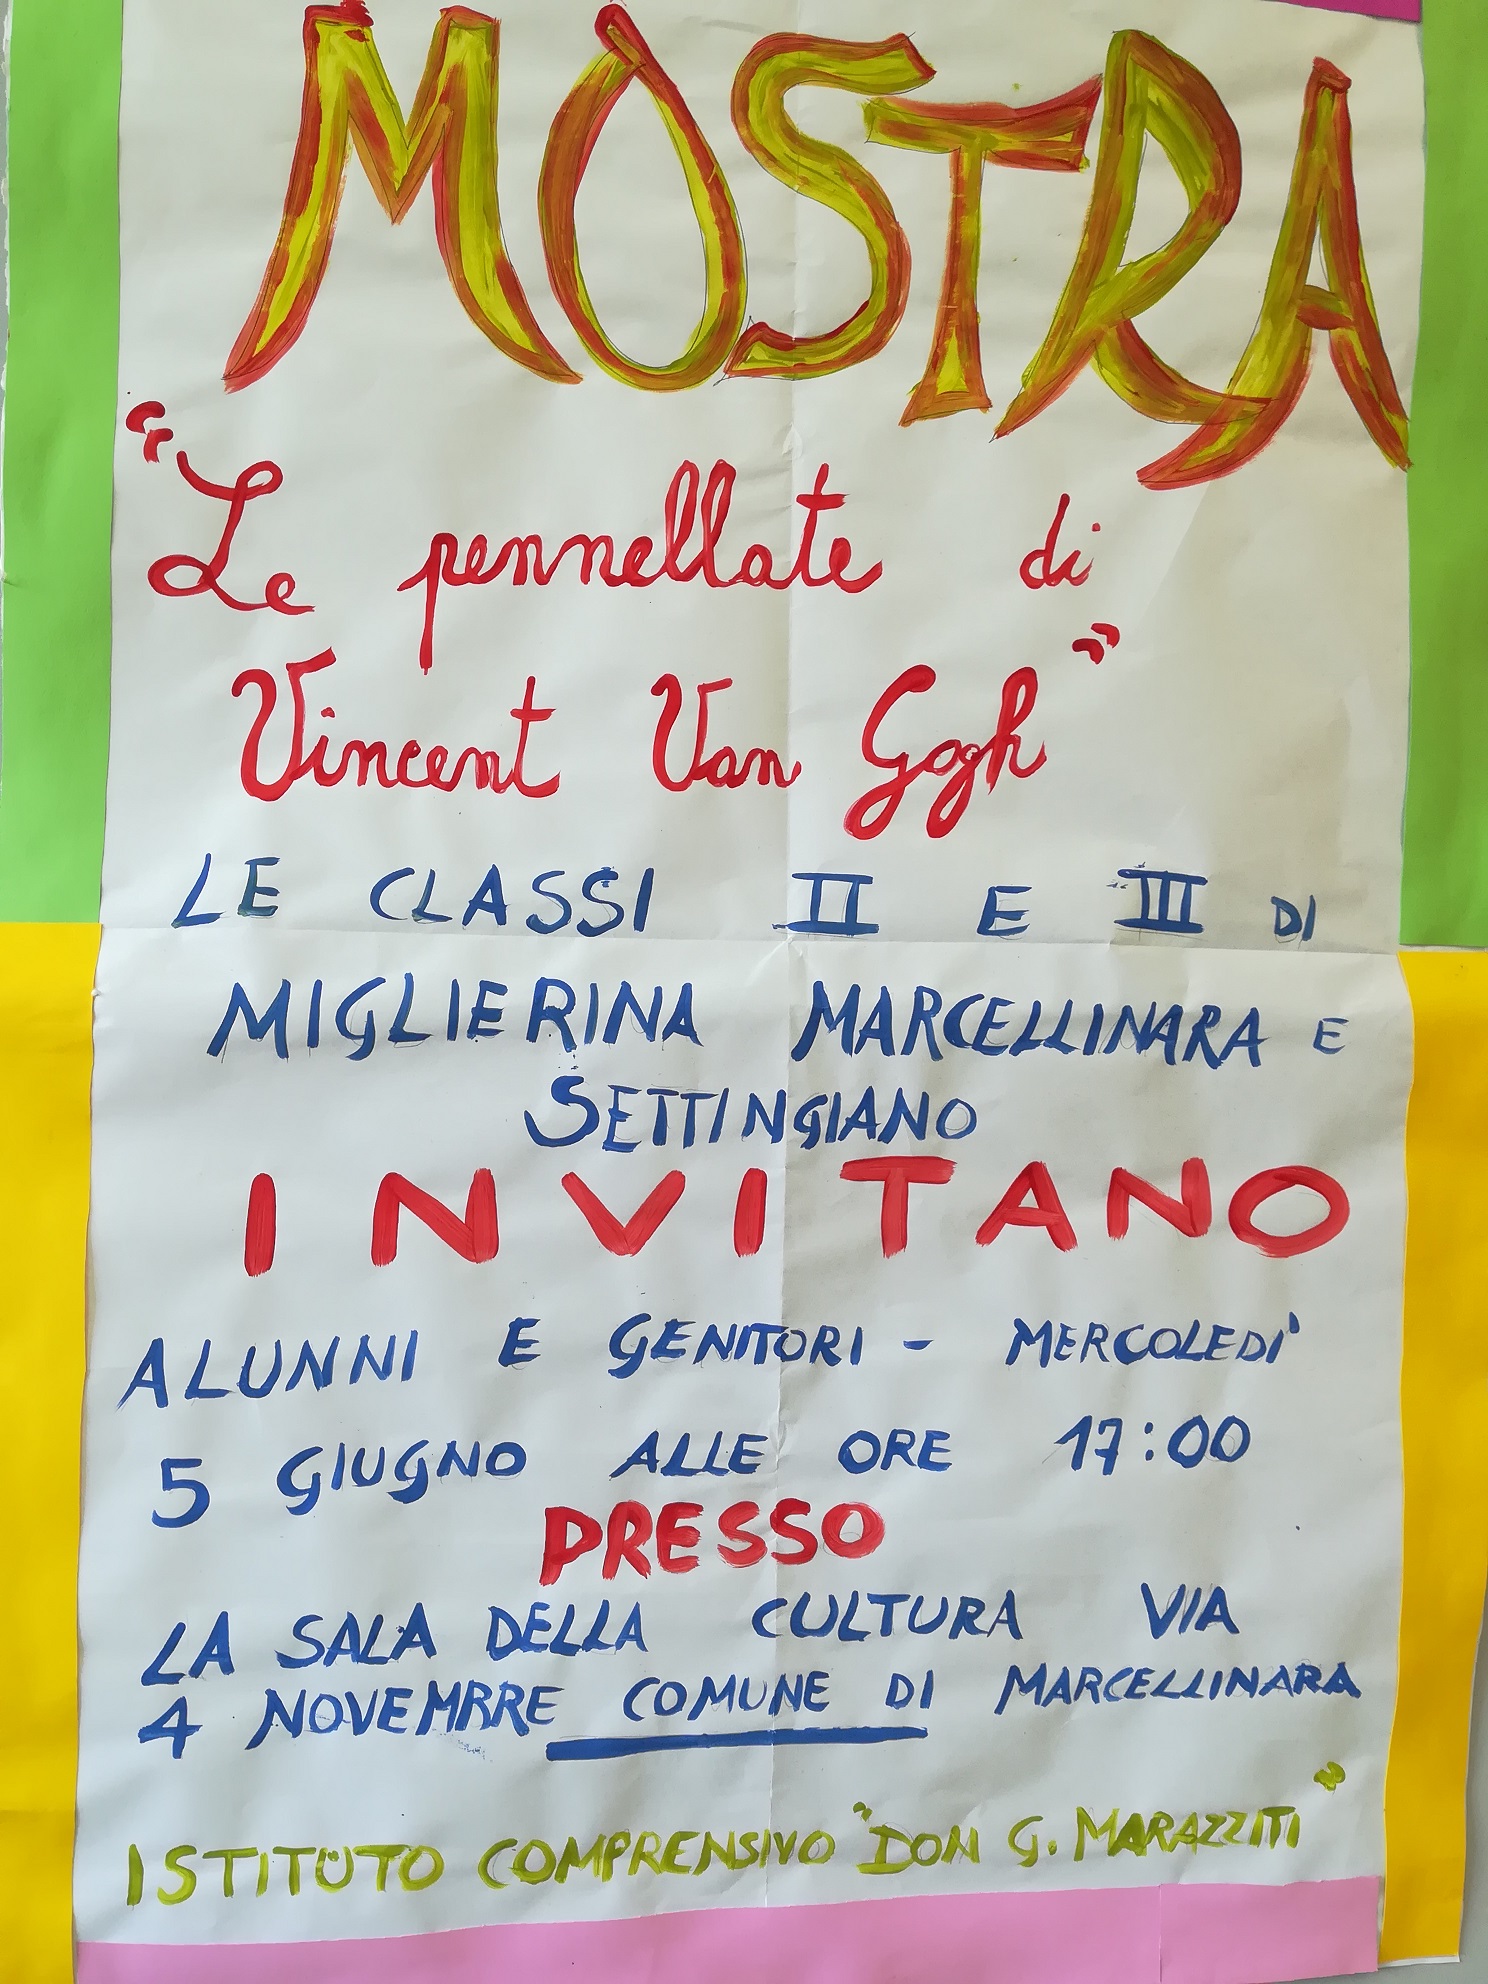 MOSTRA
"Le pennellate di
Vincent Van Gogh"
LE CLASSI II E III DI
MIGLIERINA MARCELLINARA E
SETTINGIANO
INVITANO
ALUNNI E GENITORI - MERCOLEDI'
5 GIUGNO ALLE ORE 17:00
PRESSO
LA SALA DELLA CULTURA VIA
4 NOVEMBRE COMUNE DI MARCELLINARA
ISTITUTO COMPRENSIVO "DON G. MARAZZITI"